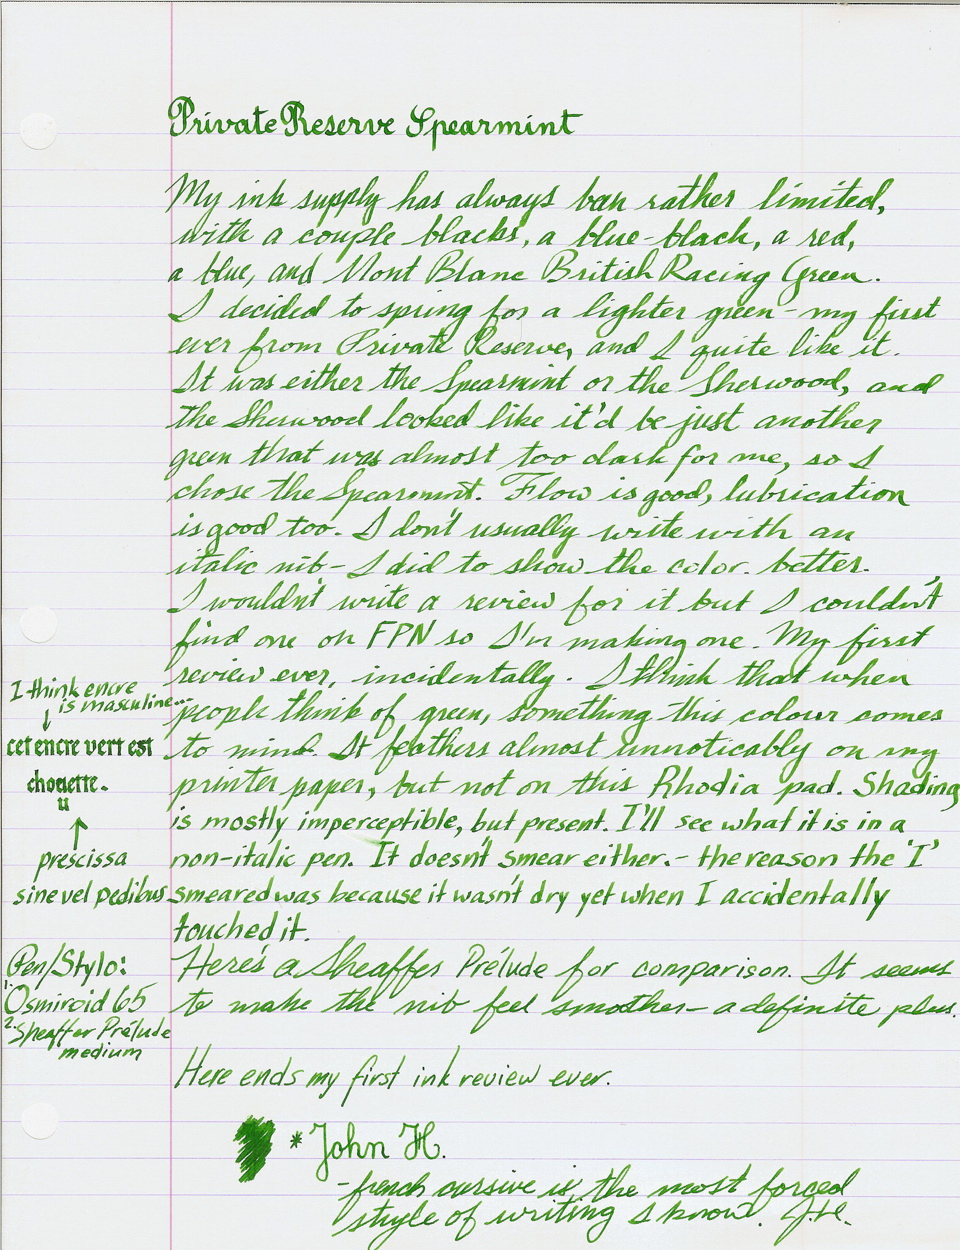 Private Reserve Spearmint
My ink supply has always been rather limited,
with a couple blacks, a blue-black, a red,
a blue, and Mont Blanc British Racing Green.
I decided to spring for a lighter green - my first
ever from Private Reserve, and I quite like it.
It was either the Spearmint or the Sherwood, and
the Sherwood looked like it'd be just another
green that was almost too dark for me, so I
chose the Spearmint. Flow is good, lubrication
is good too. I don't usually write with an
italic nib - I did to show the color. better.
I wouldn't write a review for it but I couldn't
find one on FPN so I'm making one. My first
review ever, incidentally. I think that when
people think of green, something this colour comes
to mind. It feathers almost unnoticably on my
printer paper, but not on this Rhodia pad. Shading
is mostly imperceptible, but present. I'll see what it is in a
non-italic pen. It doesn't smear either. - the reason the 'I'
smeared was because it wasn't dry yet when I accidentally
touched it.
Here's a Sheaffer Prélude for comparison. It seems
to make the nib feel smoother - a definite plus.
Here ends my first ink review ever.
* John H.
- french cursive is the most forced
style of writing I know. J.H.
I think encre
is masculine...
↓
cet encre vert est
chouette.
u
↑
prescissa
sine vel pedibus
Pen/Stylo:
1. Osmiroid 65
2. Sheaffer Prélude
medium